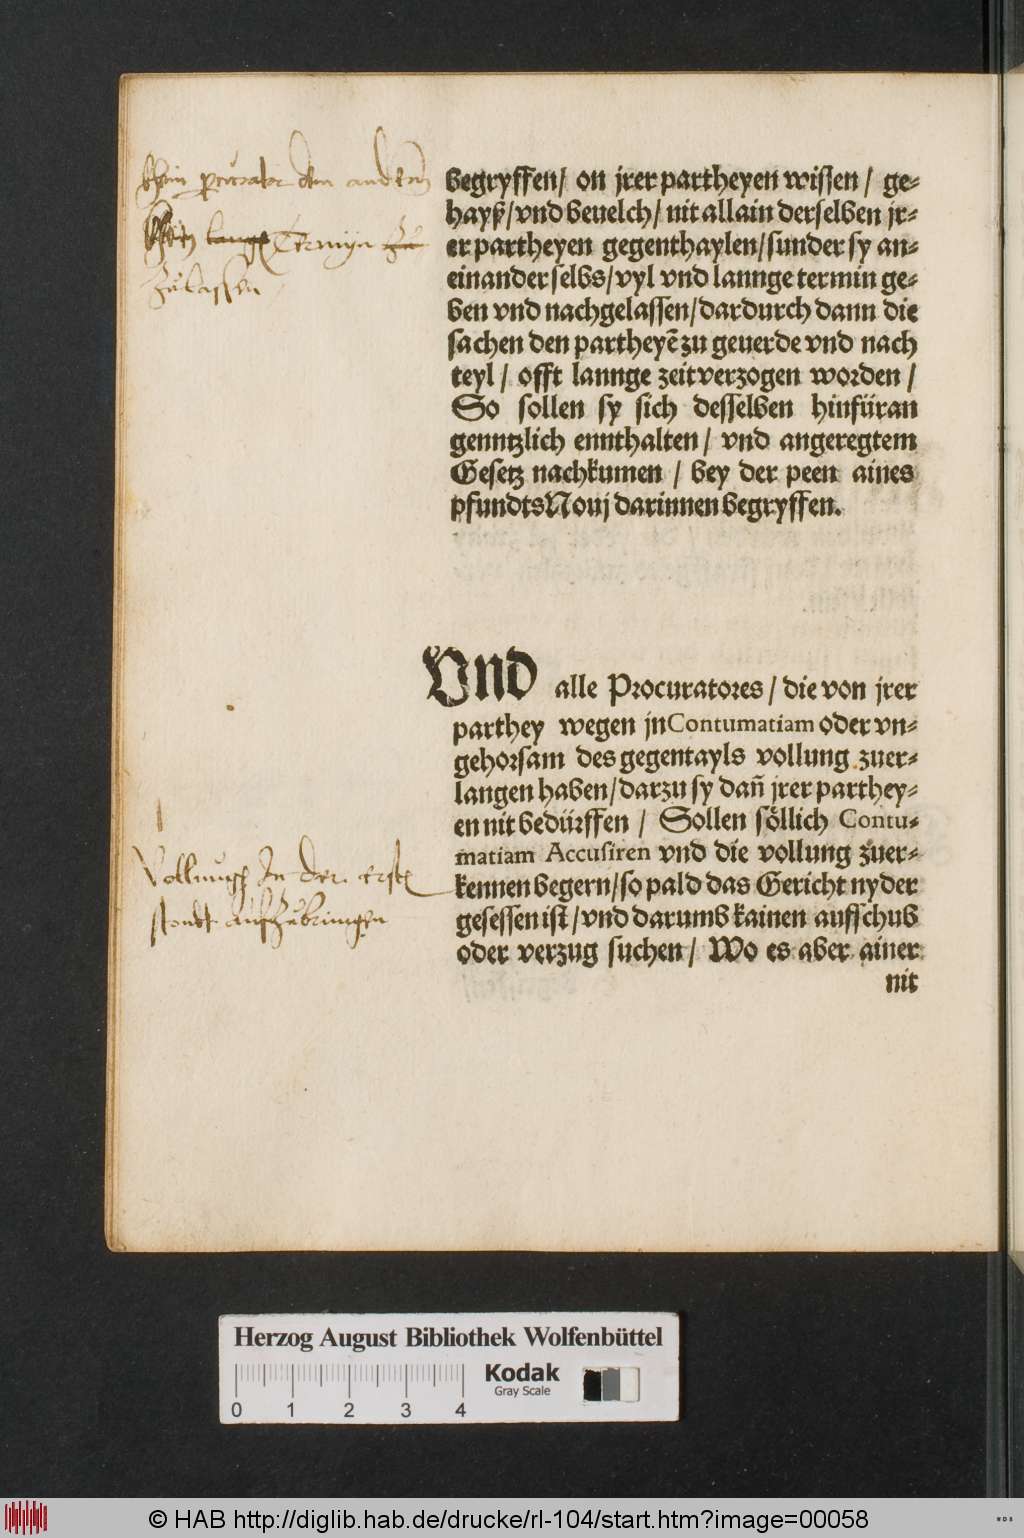 khain procurator dem anndern
lange Termyn zu
zulassen
begryffen/ on jrer partheyen wissen/ ge-
hayß/vnd beuelch/nit allain derselben jr-
er partheyen gegenthaylen/sunder sy an-
einander selbs/vyl vnd lannge termin ge-
ben vnd nachgelassen/dardurch dann die
sachen den partheyẽ zu geuerde vnd nach
teyl/ offt lannge zeit verzogen worden/
So sollen sy sich desselben hinfüran
genntzlich ennthalten/ vnd angeregtem
Gesetz nachkumen/ bey der peen aines
pfundts Nouj darinnen begryffen.
Vnd alle Procuratores/ die von jrer
parthey wegen jn Contumatiam oder vn-
gehorsam des gegentayls vollung zuer-
langen haben/darzu sy dañ jrer parthey-
en nit bedürffen/ Sollen söllich Contu-
matiam Accusiren vnd die vollung zuer-
kennen begern/so pald das Gericht nyder
gesessen ist/vnd darumb kainen auffschub
oder verzug suchen/ Wo es aber ainer
nit
Vollnung In der erst
aufzubringen
Herzog August Bibliothek Wolfenbüttel
Kodak
Gray Scale
0 1 2 3 4
© HAB http://diglib.hab.de/drucke/rl-104/start.htm?image=00058